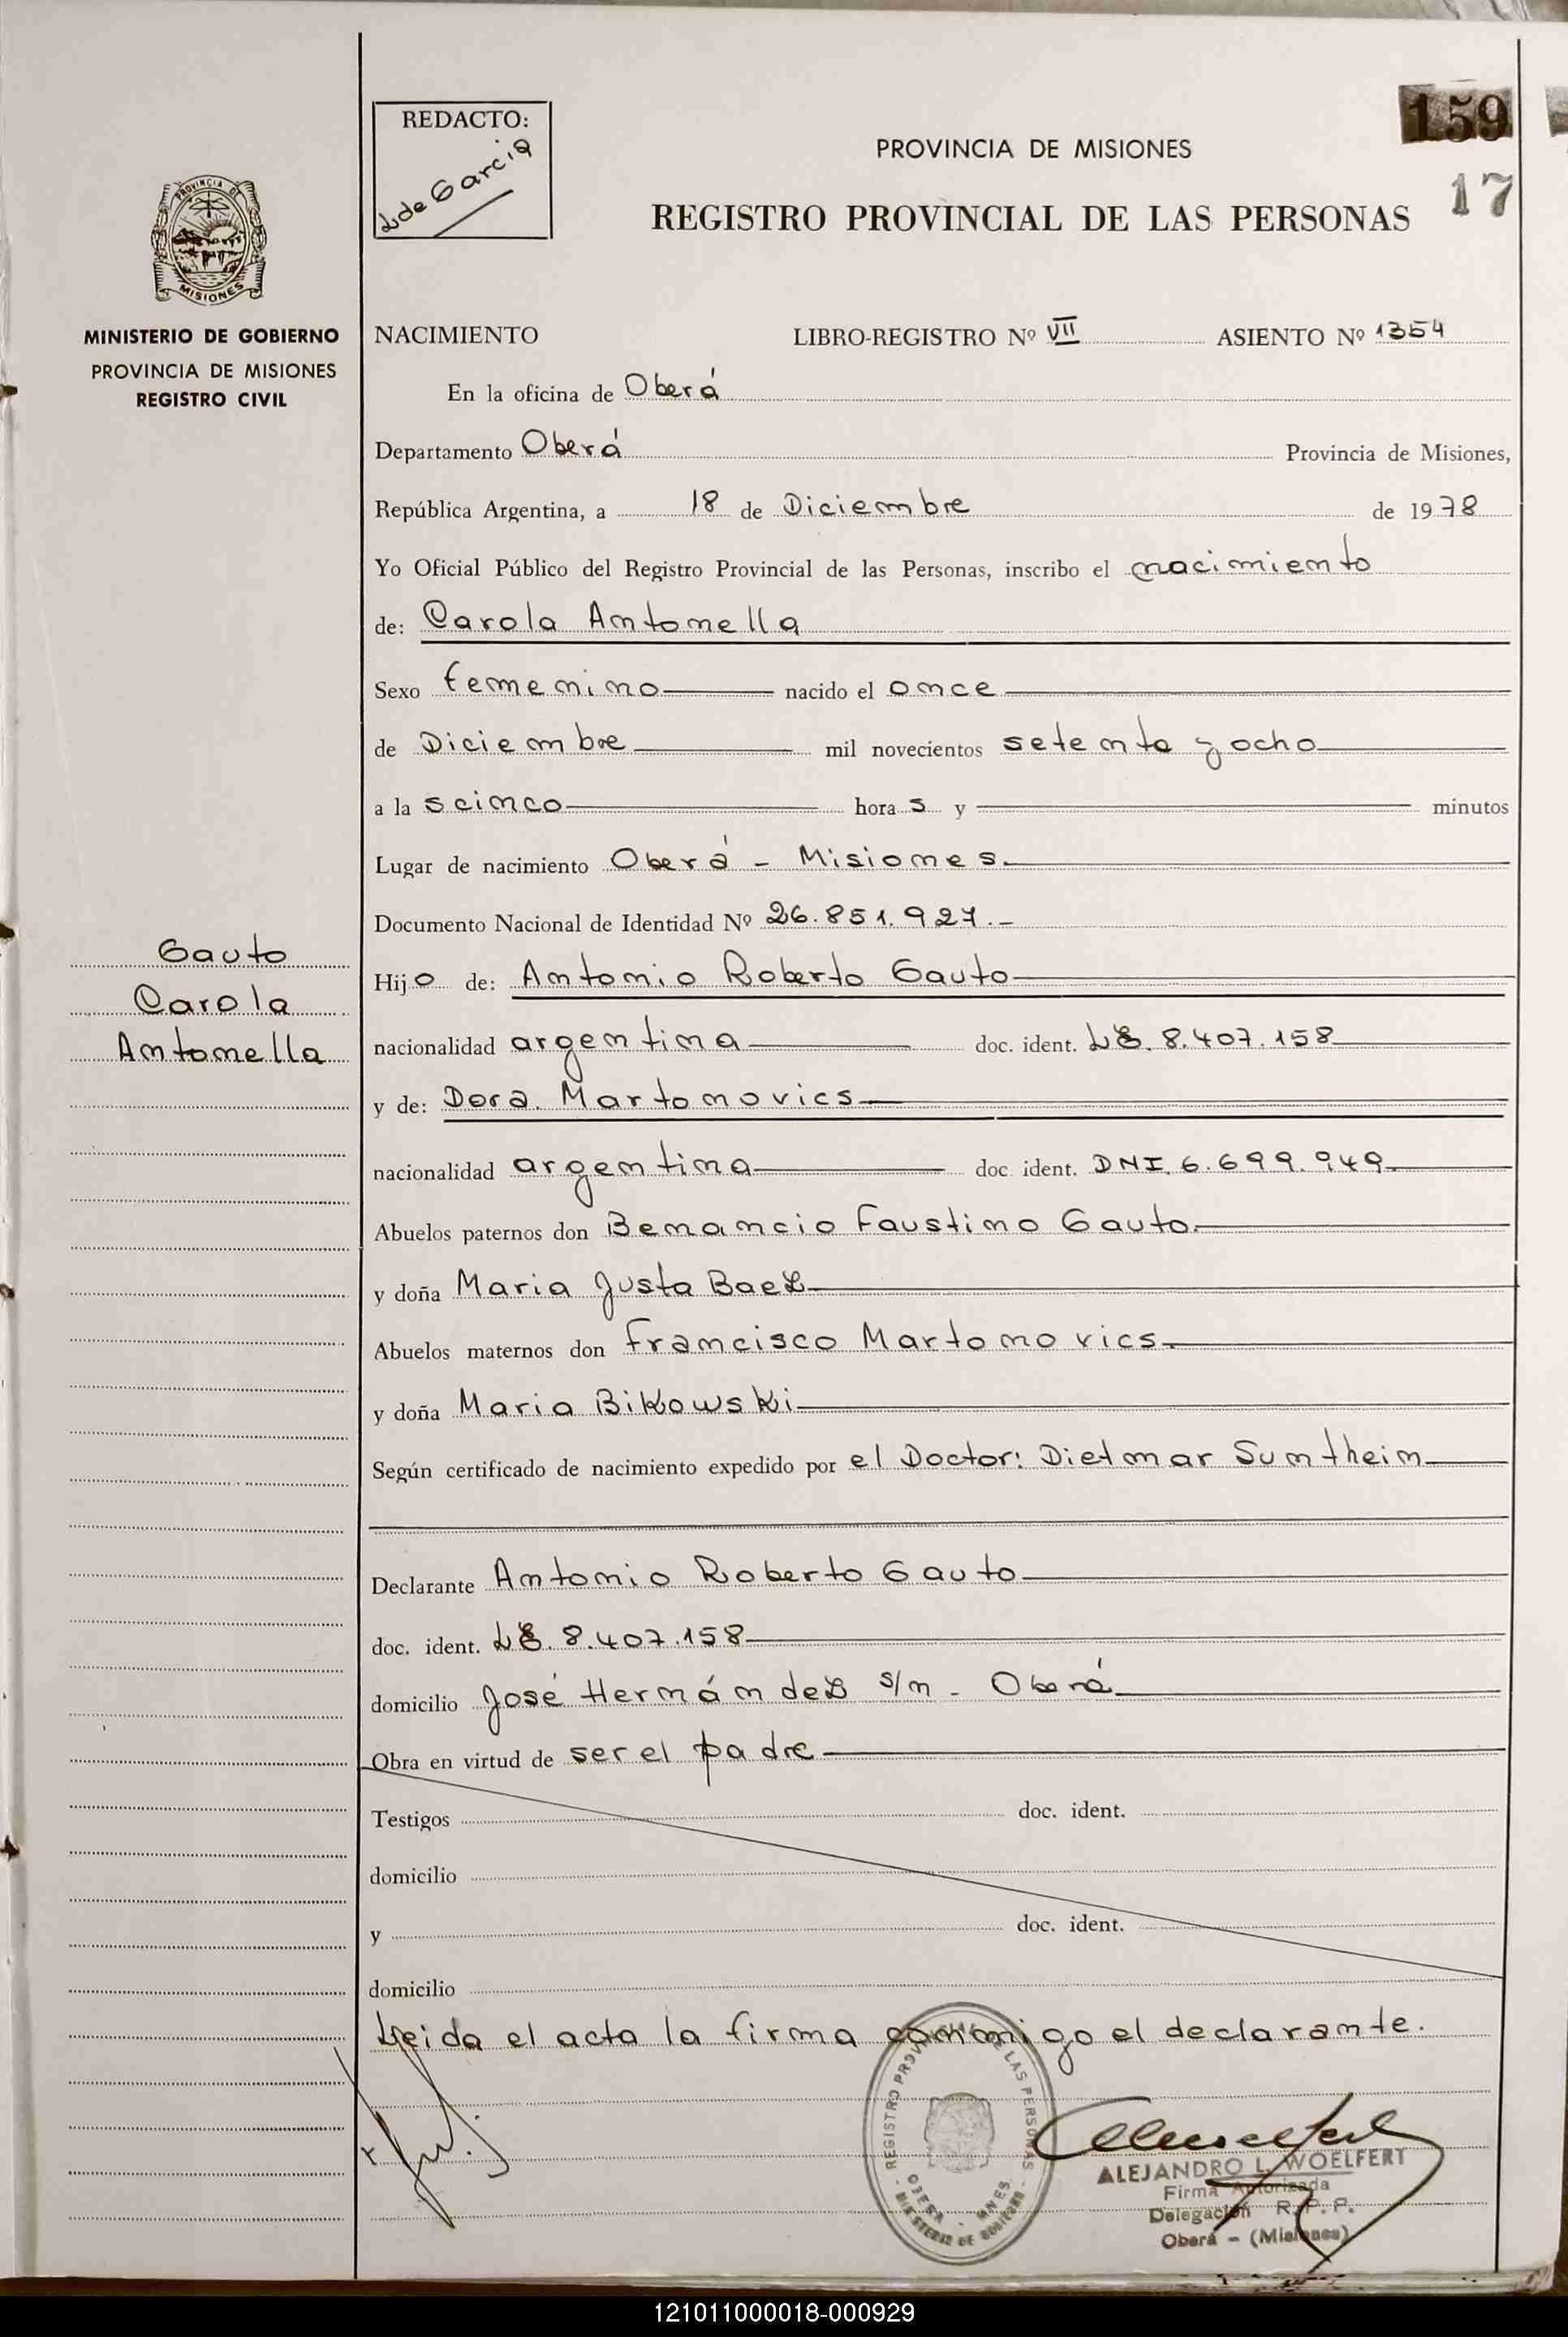 REDACTO:
L de Garcia
159
17
PROVINCIA DE MISIONES
REGISTRO PROVINCIAL DE LAS PERSONAS
PROVINCIA DE
MISIONES
MINISTERIO DE GOBIERNO
PROVINCIA DE MISIONES
REGISTRO CIVIL
NACIMIENTO LIBRO-REGISTRO Nº VII ASIENTO Nº 1354
En la oficina de Oberá
Departamento Oberá Provincia de Misiones,
República Argentina, a 18 de Diciembre de 1978
Yo Oficial Público del Registro Provincial de las Personas, inscribo el nacimiento
de: Carola Antonella
Sexo femenino nacido el once
de Diciembre mil novecientos setenta y ocho
a la s cinco hora s y minutos
Lugar de nacimiento Oberá - Misiones
Documento Nacional de Identidad Nº 26.851.927.-
Gauto
Carola
Antonella
Hijo de: Antonio Roberto Gauto
nacionalidad argentina doc. ident. LE. 8.407.158
y de: Dora Martonovics
nacionalidad argentina doc. ident. DNI. 6.699.949
Abuelos paternos don Benancio Faustino Gauto
y doña Maria Justa Baez
Abuelos maternos don Francisco Martonovics
y doña Maria Bikowski
Según certificado de nacimiento expedido por el Doctor: Dietmar Suntheim
Declarante Antonio Roberto Gauto
doc. ident. LE. 8.407.158
domicilio José Hernández s/n - Oberá
Obra en virtud de ser el padre
Testigos doc. ident.
domicilio
y doc. ident.
domicilio
Leida el acta la firma conmigo el declarante.
REGISTRO PROVINCIAL DE LAS PERSONAS
OBERA - MNES.
MINISTERIO DE GOBIERNO
ALEJANDRO L. WOELFERT
Firma Autorizada
Delegación R.P.P.
Oberá - (Misiones)
121011000018-000929